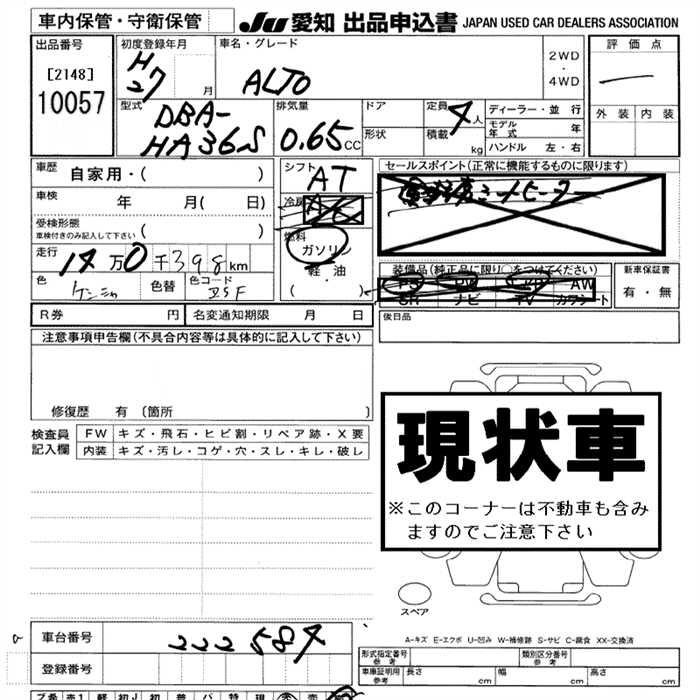 車内保管・守衛保管
JU 愛知 出品申込書 JAPAN USED CAR DEALERS ASSOCIATION
出品番号
[2148]
10057
初度登録年月
H
27 月
車名・グレード
ALTO
2WD
・
4WD
評価点
外装 内装
型式
DBA-
HA36S
排気量
0.65 CC
ドア
形状
定員
4 人
積載 kg
ディーラー・並 行
モデル
年式 年
ハンドル 左・右
車歴
自家用・( )
車検
年 月( 日)
受検形態
車検付きのみ記入して下さい ( )
走行
14万0千398km
色
色替
色コード
シフト
AT
冷房
燃料
ガソリン
・
軽 油
( )
セールスポイント(正常に機能するものに限ります)
装備品(純正品に限り○をつけてください)
PS PW AW
SR ナビ TV カワシート
新車保証書
有・無
後日品
R券 円
名変通知期限 月 日
注意事項申告欄(不具合内容等は具体的に記入して下さい)
修復歴 有 〔箇所 〕
検査員
記入欄
FW キズ・飛石・ヒビ割・リペア跡・X要
内装 キズ・汚レ・コゲ・穴・スレ・キレ・破レ
現状車
※このコーナーは不動車も含み
ますのでご注意下さい
スペア
車台番号
222584
登録番号
A-キズ E-エクボ U-凹み W-補修跡 S-サビ C-腐食 XX-交換済
形式指定番号
参考
類別区分番号
参考
車庫証明用
参考
長さ cm 幅 cm 高さ cm